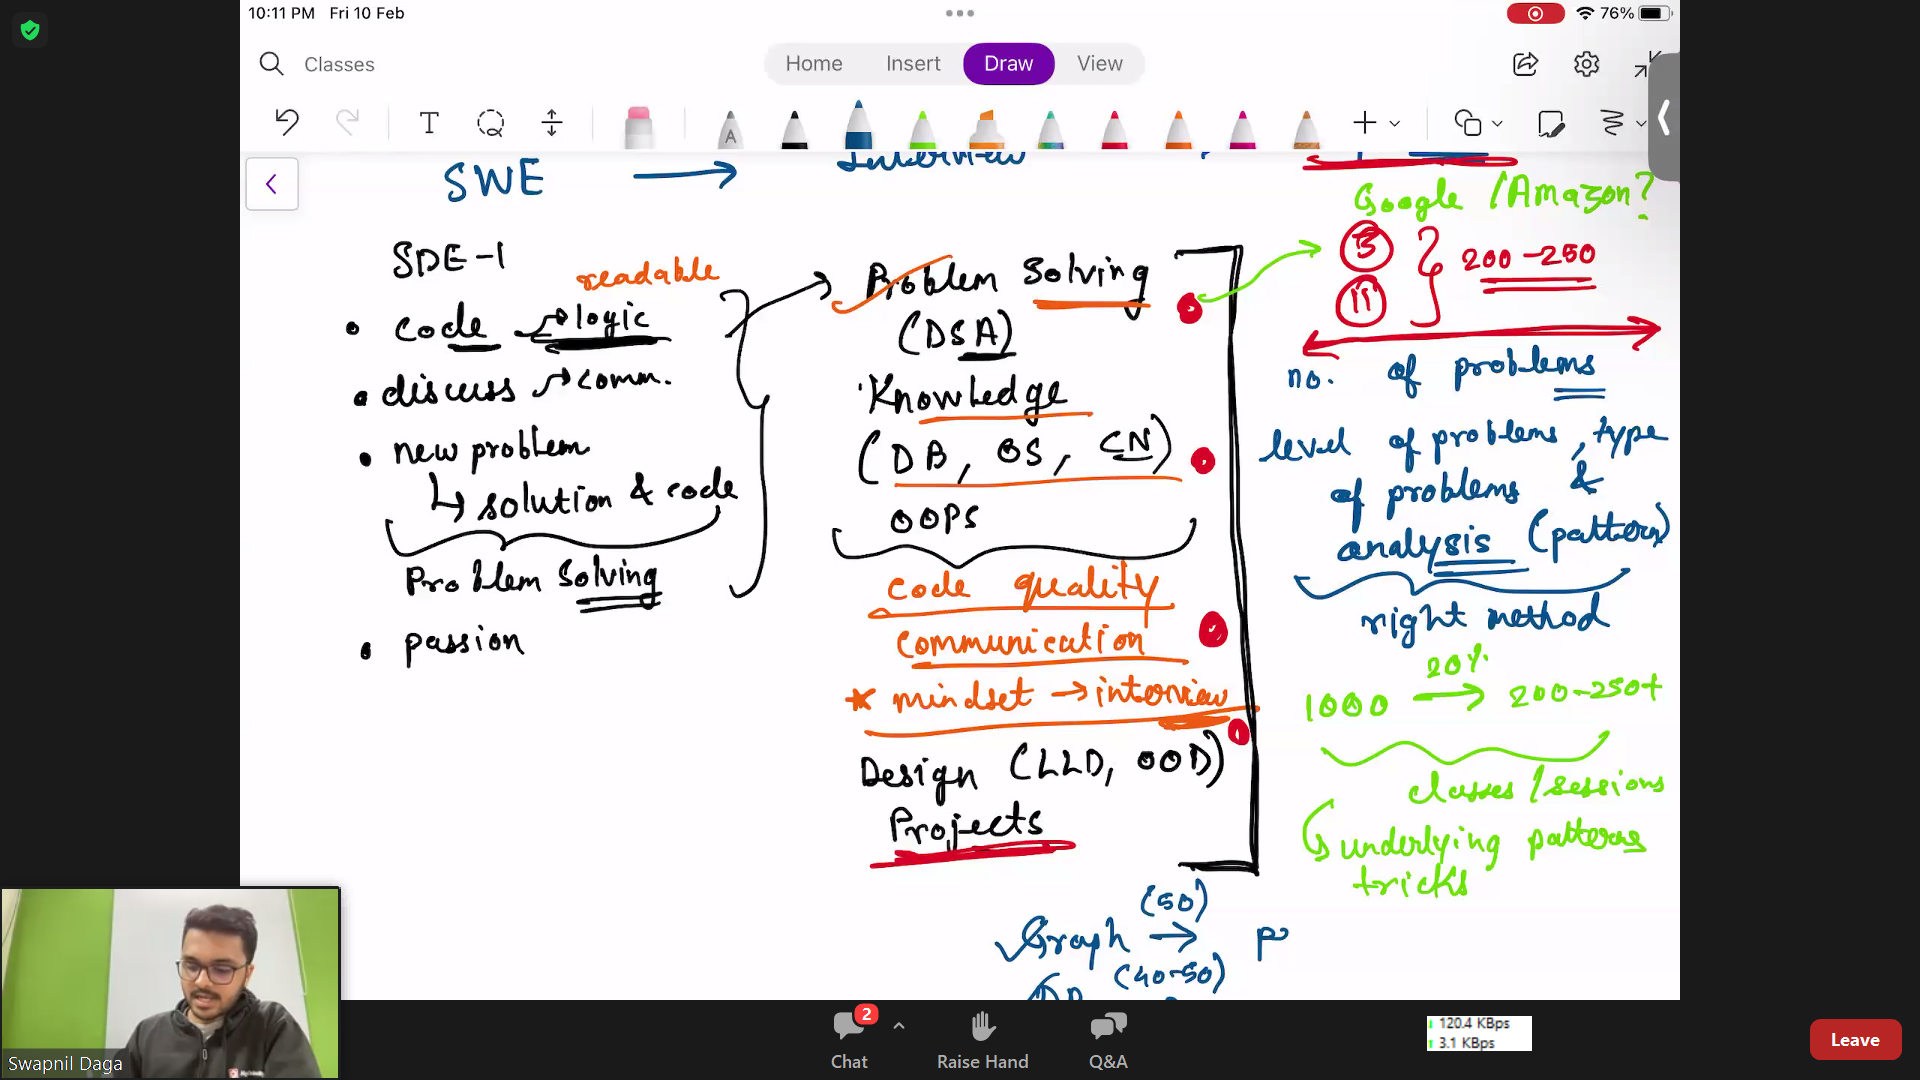 10:11 PM Fri 10 Feb
76%
Classes
Home Insert Draw View
SWE → Interview
Google / Amazon?
SDE-1
readable
code → logic
discuss → comm.
new problem
↳ solution & code
Problem Solving
passion
Problem Solving
(DSA)
Knowledge
(DB, OS, CN)
OOPS
code quality
communication
* mindset → interview
Design (LLD, OOD)
Projects
11
200-250
no. of problems
level of problems, type
of problems &
analysis (pattern)
right method
20%
1000 → 200-250+
classes / sessions
underlying patterns
tricks
(50)
Graph → P
(40-50)
Swapnil Daga
2
Chat
Raise Hand
Q&A
120.4 KBps
3.1 KBps
Leave